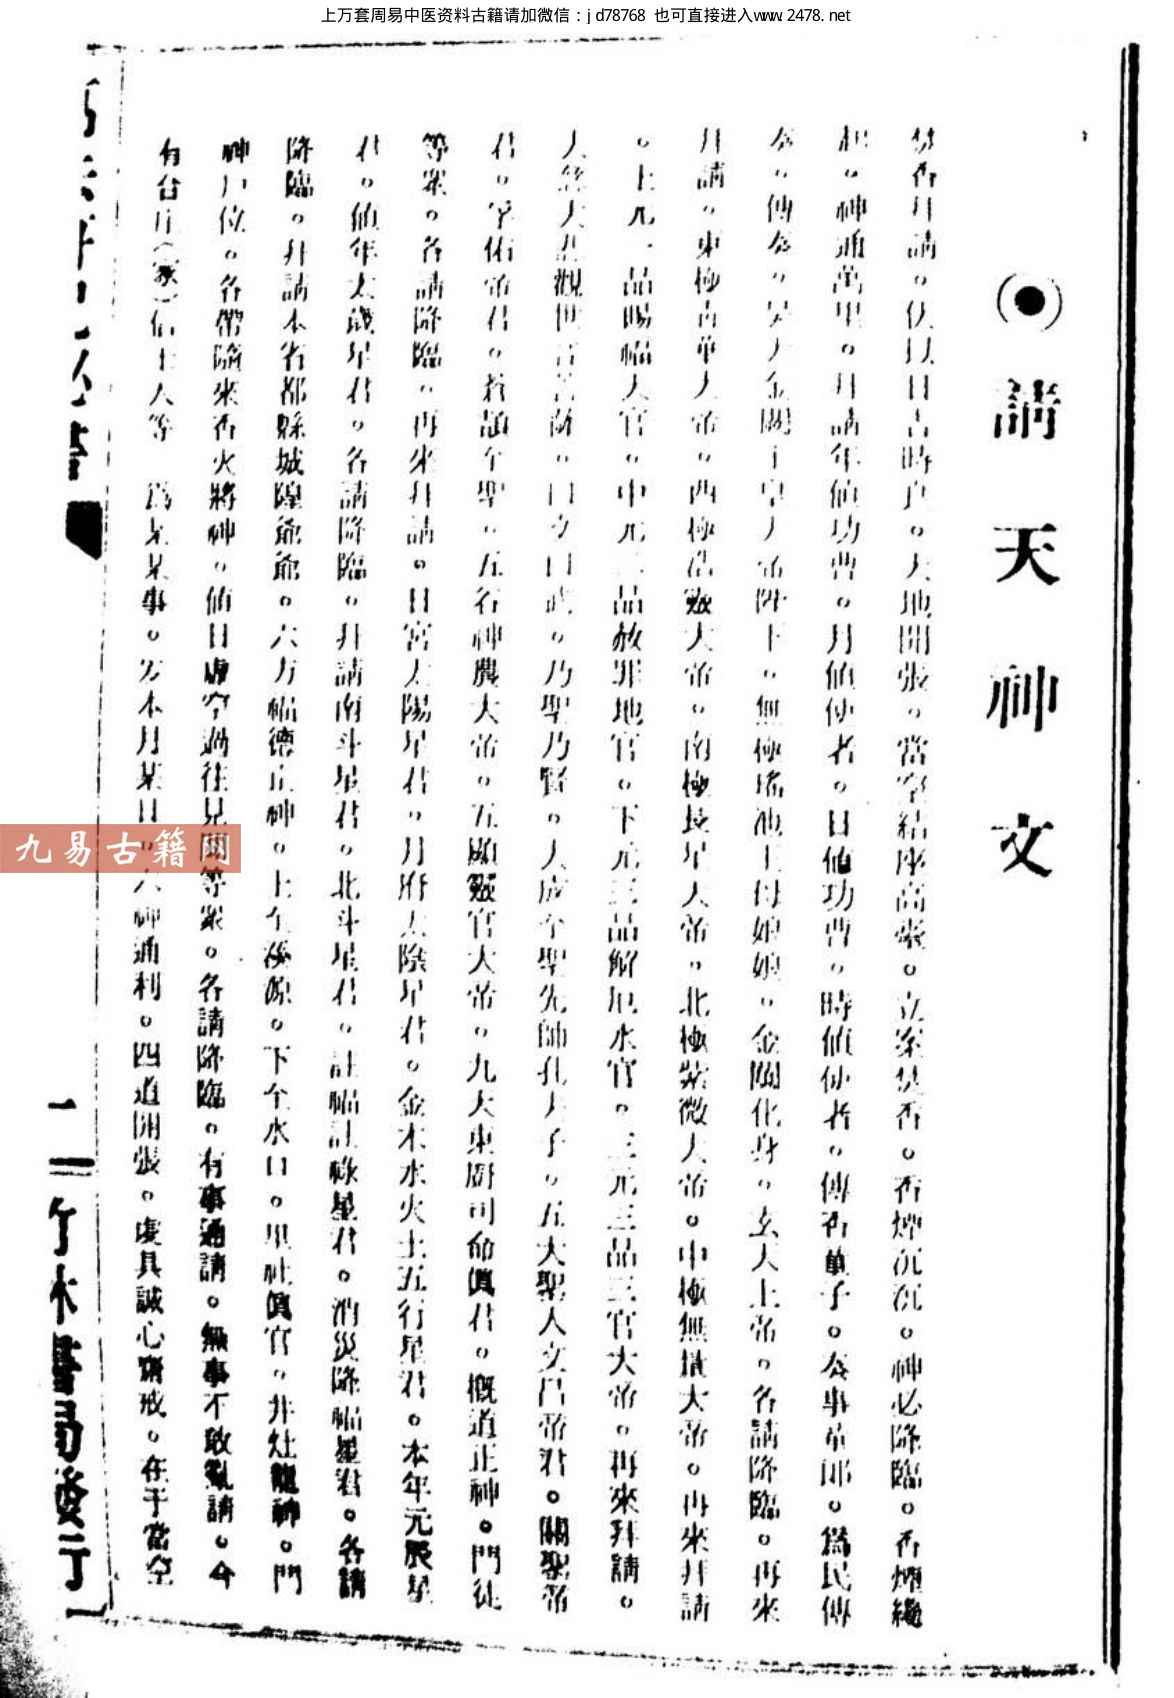 上万套周易中医资料古籍请加微信：jd78768 也可直接进入www.2478.net
請天神文
焚香拜請。伏以日吉時良。天地開張。當空結座高張。立案焚香。香煙沉沉。神必降臨。香煙繞
起。神通萬里。拜請年值功曹。月值使者。日值功曹。時值使者。傳香童子。奏事童郎。爲民傳
奏。傳奏。昊天金闕玉皇大帝陛下。無極瑤池王母娘娘。金闕化身。玄天上帝。各請降臨。再來
拜請。東極青華大帝。西極浩靈大帝。南極長星大帝。北極紫微大帝。中極無極大帝。再來拜請
。上元一品賜福天官。中元二品赦罪地官。下元三品解厄水官。三元三品三官大帝。再來拜請。
大慈大悲觀世音菩薩。曰文曰武。乃聖乃賢。大成至聖先師孔夫子。五大聖人文昌帝君。關聖帝
君。孚佑帝君。蒼頡至聖。五谷神農大帝。五顯靈官大帝。九天東廚司命真君。概道正神。門徒
等眾。各請降臨。再來拜請。日宮太陽星君。月府太陰星君。金木水火土五行星君。本年元辰星
君。值年太歲星君。各請降臨。拜請南斗星君。北斗星君。註福註祿星君。消災降福星君。各請
降臨。拜請本省都縣城隍爺爺。六方福德正神。上至溪源。下至水口。里社真官。井灶龍神。門
神戶位。各帶隨來香火將神。值日虛空過往見聞等眾。各請降臨。有事通請。無事不敢亂請。今
有台庄（家）信士人等 爲某某事。于本月某日。天神通利。四道開張。虔具誠心齋戒。在于當空
二 竹林書局發行
九易古籍网